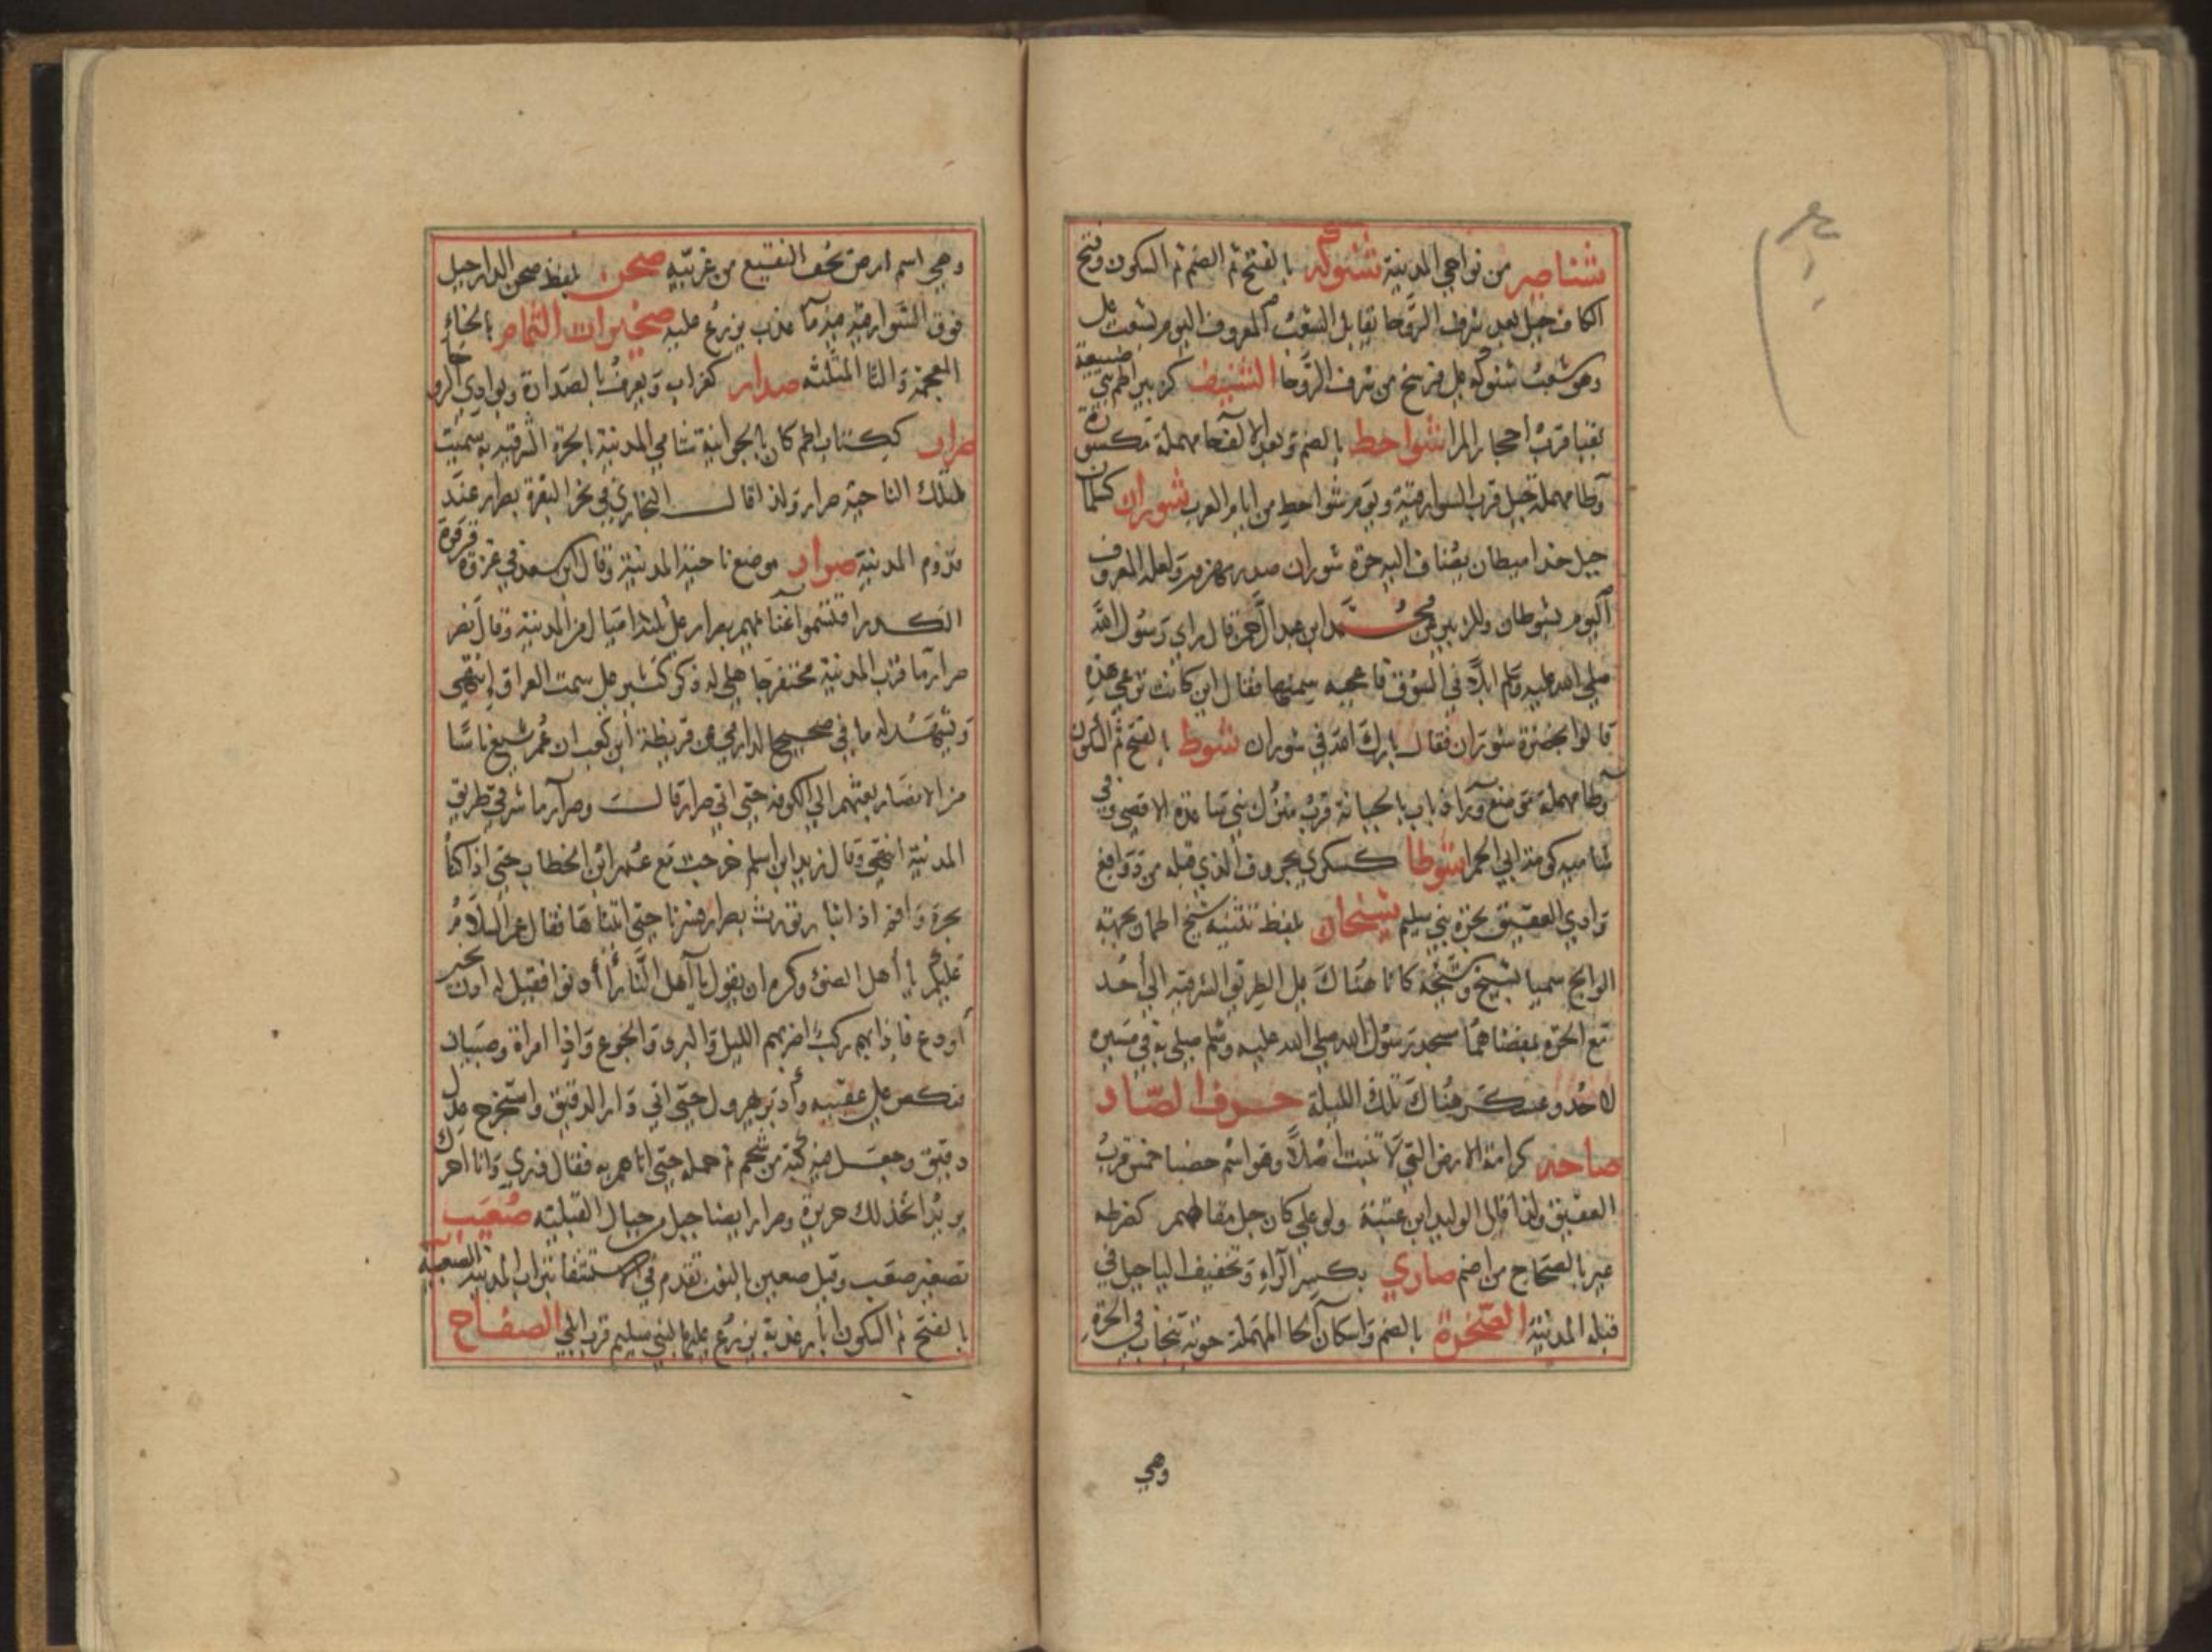 شناصير من نواحي المدينة شنوكه بالفتح ثم الضم ثم السكون وفتح
الكاف جبل بعد شرف الروحا يقابل الشعب المعروف اليوم بشعب علي
وهو شعب شنوكه على فرسخ من شرف الروحا الشنيف كزبير اطم بني ضبيعة
بقبا قرب احجار المرا شواحط بالضم وبعد الالف حا مهملة مكسورة
وطا مهملة جبل قرب السوارقية ويوم شواحط من ايام العرب شوران كسلمان
جبل حذا ميطان يضاف اليه حرة شوران صدر مهزور ولعله المعروف
اليوم بشوطان وللزبير عن محمد ابن عبد الرحمن قال راي رسول الله
صلى الله عليه وسلم ابلا في السوق فاعجبه سمنها فقال اين كانت ترعي هذه
قالوا بحرة شوران فقال بارك الله في شوران شوط بالفتح ثم السكون
وطا مهملة موضع وراذباب بالجبانة قرب منزل بني ساعدة الاقصى وفي
شاميه كومة ابي الحمرا شوطا كسكري بحروف الذي قبله من دوافع
وادي العقيق بحرة بني سليم شيخان بلفظ تثنية شيخ اطمان بجهة
الوالج سميا بشيخ وشيخة كانا هناك على الطريق الشرقية الى أحد
مع الحرة بفضاهما مسجد رسول الله صلى الله عليه وسلم صلى به في مسيره
لاحد وعسكر هناك تلك الليلة حرف الصاد
صاحه كرامة الارض التي لا تنبت اصلا وهو اسم هضبا حمس قرب
العقيق ولذا قال الوليد ابن عقبة ولو علي كان جل مقاطهم كضرطه
عير بالصحاح من اضم صاري بكسر الراء وتخفيف اليا جبل في
قبلة المدينة الصحرة بالضم واسكان الحا المهملة جوبة تنجاب في الحرة
وهي
وهي اسم ارض بحف النقيع من غربيه صحن بلفظ صحن الدار جبل
فوق السوارقية فيه ما عذب يزرع عليه صخيرات الثمام بالخاء
المعجمة والثا المثلثه صدار كغراب ويعرف بالصدارة وبوادي الروحا
صرار ككتاب اطم كان بالجوانية شامي المدينة بالحرة الشرقيه به سميت
تلك الناحية صرار ولذا قال البخاري في نحر البقرة بصرار عند
قدوم المدينة صرار موضع ناحية المدينة وقال ابن سعد في غزوة قرقرة
الكدر اقتسموا غنايمهم بصرار على ثلاثة اميال من المدينة وقال نصر
صرار ما قرب المدينة محتفر جاهلي له ذكر كثير على سمت العراق انتهى
ويشهد له ما في صحيح الدارمي عن قريظة ابن كعب ان عمر شيع ناسا
من الانصار بعثهم الى الكوفة حتى اتى صرار قالت وصرار ما شرقي طريق
المدينة انتهى وقال زيد ابن اسلم خرجت مع عمر ابن الخطاب حتى اذا كنا
بحرة واقم اذا نار توٴرث بصرار فسرنا حتى اتيناها فقال عمر السلام
عليكم يا أهل الضوء وكره ان يقول يا اهل النار أأدنوا فقيل له ادن بخير
أودع فاذا بهم ركب اضربهم الليل والبرد والجوع واذا امراة وصبيان
فنكص علي عقبيه وأدبر يهرول حتى اتى دار الدقيق واستخرج عدل
دقيق وجعل فيه كبة من شحم ثم حمله حتى اتاهم به فقال ذري وانا احرك
يريد اتخذ لك حريرة وصرار ايضا جبل من جبال القبلية صعيب
تصغير صعب وقيل صعين بالنون تقدم في الاستشفا بتراب المدينة الصعبية
بالفتح ثم السكون ابار عذبة يزرع عليها لبني سليم قرب ابلى الصفاح